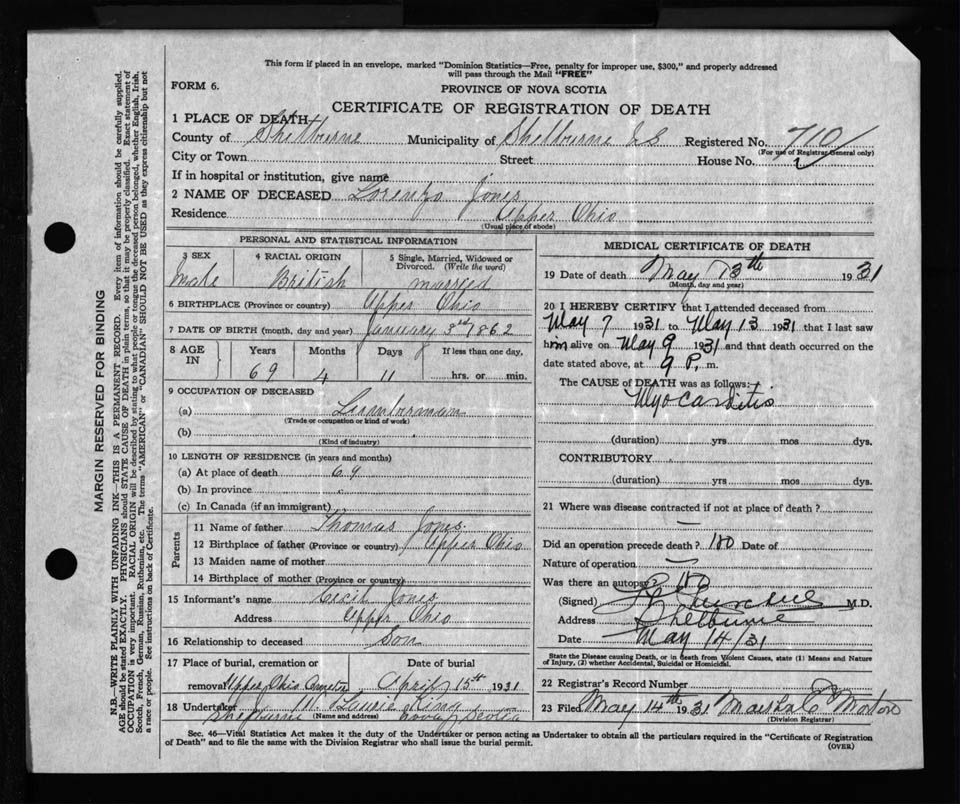 This form if placed in an envelope, marked "Dominion Statistics—Free, penalty for improper use, $300," and properly addressed
will pass through the Mail "FREE"
FORM 6.
PROVINCE OF NOVA SCOTIA
CERTIFICATE OF REGISTRATION OF DEATH
1 PLACE OF DEATH
County of Shelburne Municipality of Shelburne Registered No. 710
(For use of Registrar General only)
City or Town Street House No.
If in hospital or institution, give name
2 NAME OF DECEASED Lorenzo Jones
Residence Upper Ohio
(Usual place of abode)
PERSONAL AND STATISTICAL INFORMATION
3 SEX 4 RACIAL ORIGIN 5 Single, Married, Widowed or Divorced. (Write the word)
Male British married
6 BIRTHPLACE (Province or country) Upper Ohio
7 DATE OF BIRTH (month, day and year) January 3rd 1862
8 AGE IN Years Months Days If less than one day,
69 4 11 hrs. or min.
9 OCCUPATION OF DECEASED
(a) Lumberman
(Trade or occupation or kind of work)
(b)
(Kind of industry)
10 LENGTH OF RESIDENCE (in years and months)
(a) At place of death 69
(b) In province
(c) In Canada (if an immigrant)
Parents
11 Name of father Thomas Jones
12 Birthplace of father (Province or country) Upper Ohio
13 Maiden name of mother
14 Birthplace of mother (Province or country)
15 Informant's name Cecil Jones
Address Upper Ohio
16 Relationship to deceased Son
17 Place of burial, cremation or Date of burial
removal Upper Ohio April 15th 1931
18 Undertaker King
Shelburne (Name and address) Nova Scotia
MEDICAL CERTIFICATE OF DEATH
19 Date of death May 13th 1931
(Month, day and year)
20 I HEREBY CERTIFY that I attended deceased from
May 7 1931 to May 13 1931 that I last saw
him alive on May 9 1931 and that death occurred on the
date stated above, at 9 P. m.
The CAUSE of DEATH was as follows:
Myocarditis
(duration) yrs mos dys.
CONTRIBUTORY
(duration) yrs mos dys.
21 Where was disease contracted if not at place of death?
Did an operation precede death? No Date of
Nature of operation
Was there an autopsy? No
(Signed) M.D.
Address Shelburne
Date May 14/31
State the Disease causing Death, or in death from Violent Causes, state (1) Means and
Nature of Injury, (2) whether Accidental, Suicidal or Homicidal.
22 Registrar's Record Number
23 Filed May 14th 1931 Morton
(Division Registrar)
Sec. 46—Vital Statistics Act makes it the duty of the Undertaker or person acting as Undertaker to obtain all the particulars required in the "Certificate of Registration
of Death" and to file the same with the Division Registrar who shall issue the burial permit.
(OVER)
MARGIN RESERVED FOR BINDING
N.B.—WRITE PLAINLY WITH UNFADING INK—THIS IS A PERMANENT RECORD. Every item of information should be carefully supplied.
AGE should be stated EXACTLY. PHYSICIANS should STATE CAUSE OF DEATH in plain terms, so that it may be properly classified. Exact statement of
OCCUPATION is very important. RACIAL ORIGIN will be described by stating to what people or tongue the deceased person belonged, whether English, Irish,
Scotch, French, German, Russian, Ruthenian, etc. The terms "AMERICAN" or "CANADIAN" SHOULD NOT BE USED as they express citizenship but not
a race or people. See instructions on back of Certificate.